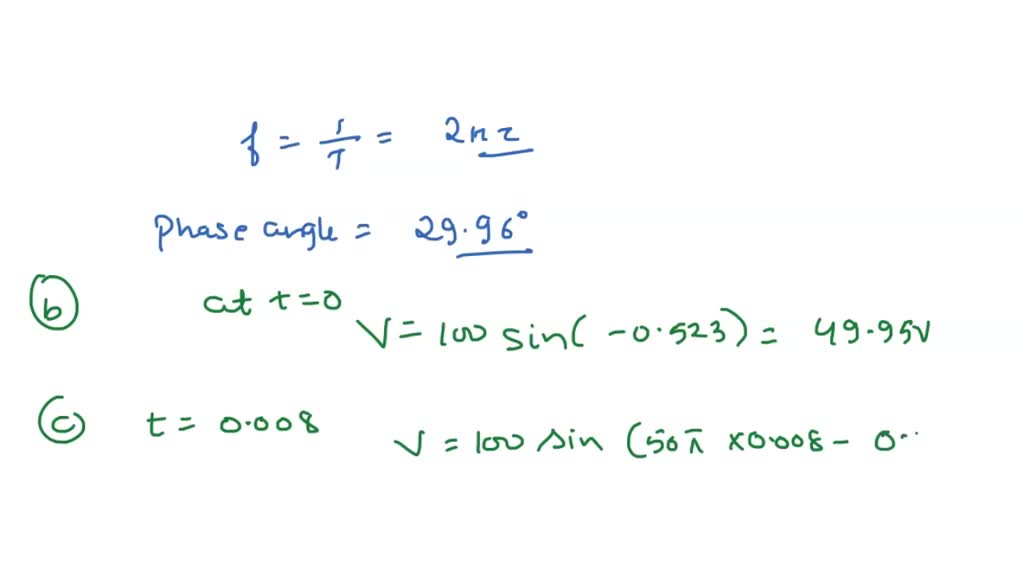 f = 1/T = 2Hz
Phase angle = 29.96°
b at t=0
V = 100 sin(-0.523) = 49.95V
c t = 0.008
V = 100 sin (50π x0.008 - 0..